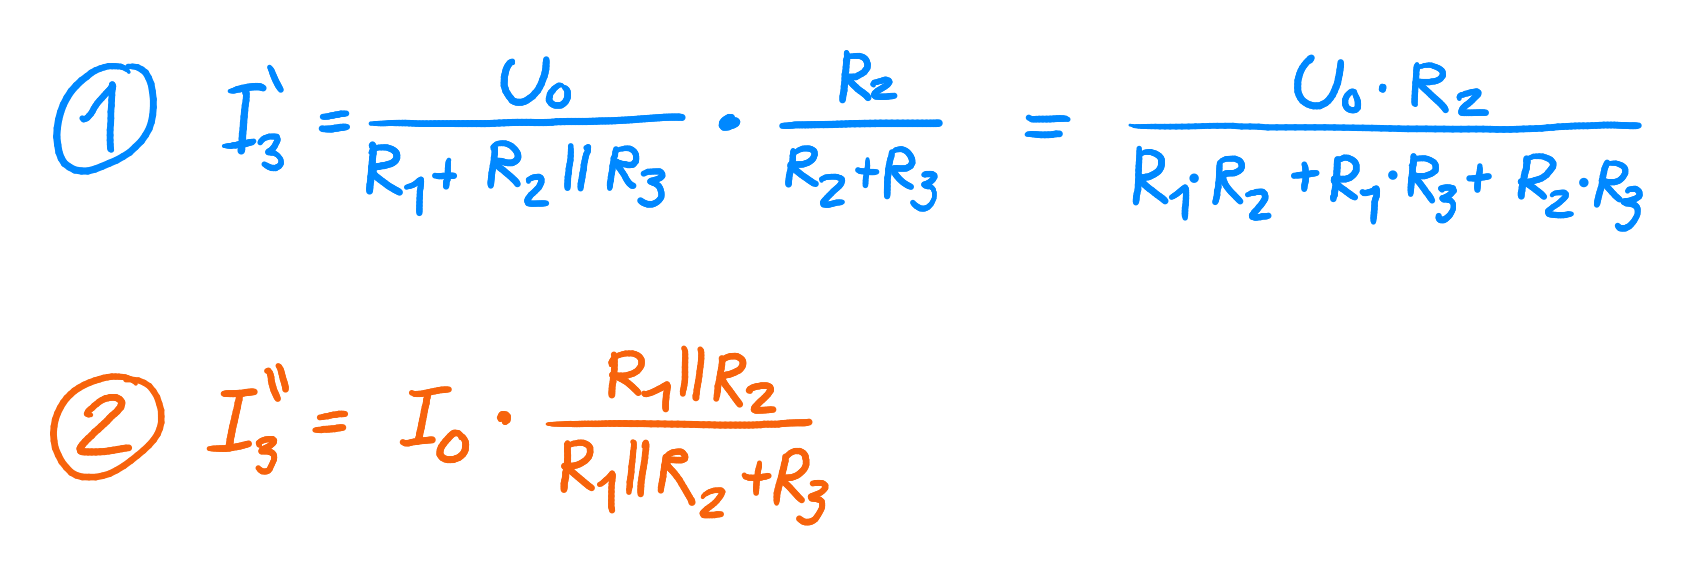 ① I₃' = U₀ / (R₁ + R₂ || R₃) · R₂ / (R₂ + R₃) = (U₀ · R₂) / (R₁ · R₂ + R₁ · R₃ + R₂ · R₃)
② I₃'' = I₀ · (R₁ || R₂) / (R₁ || R₂ + R₃)